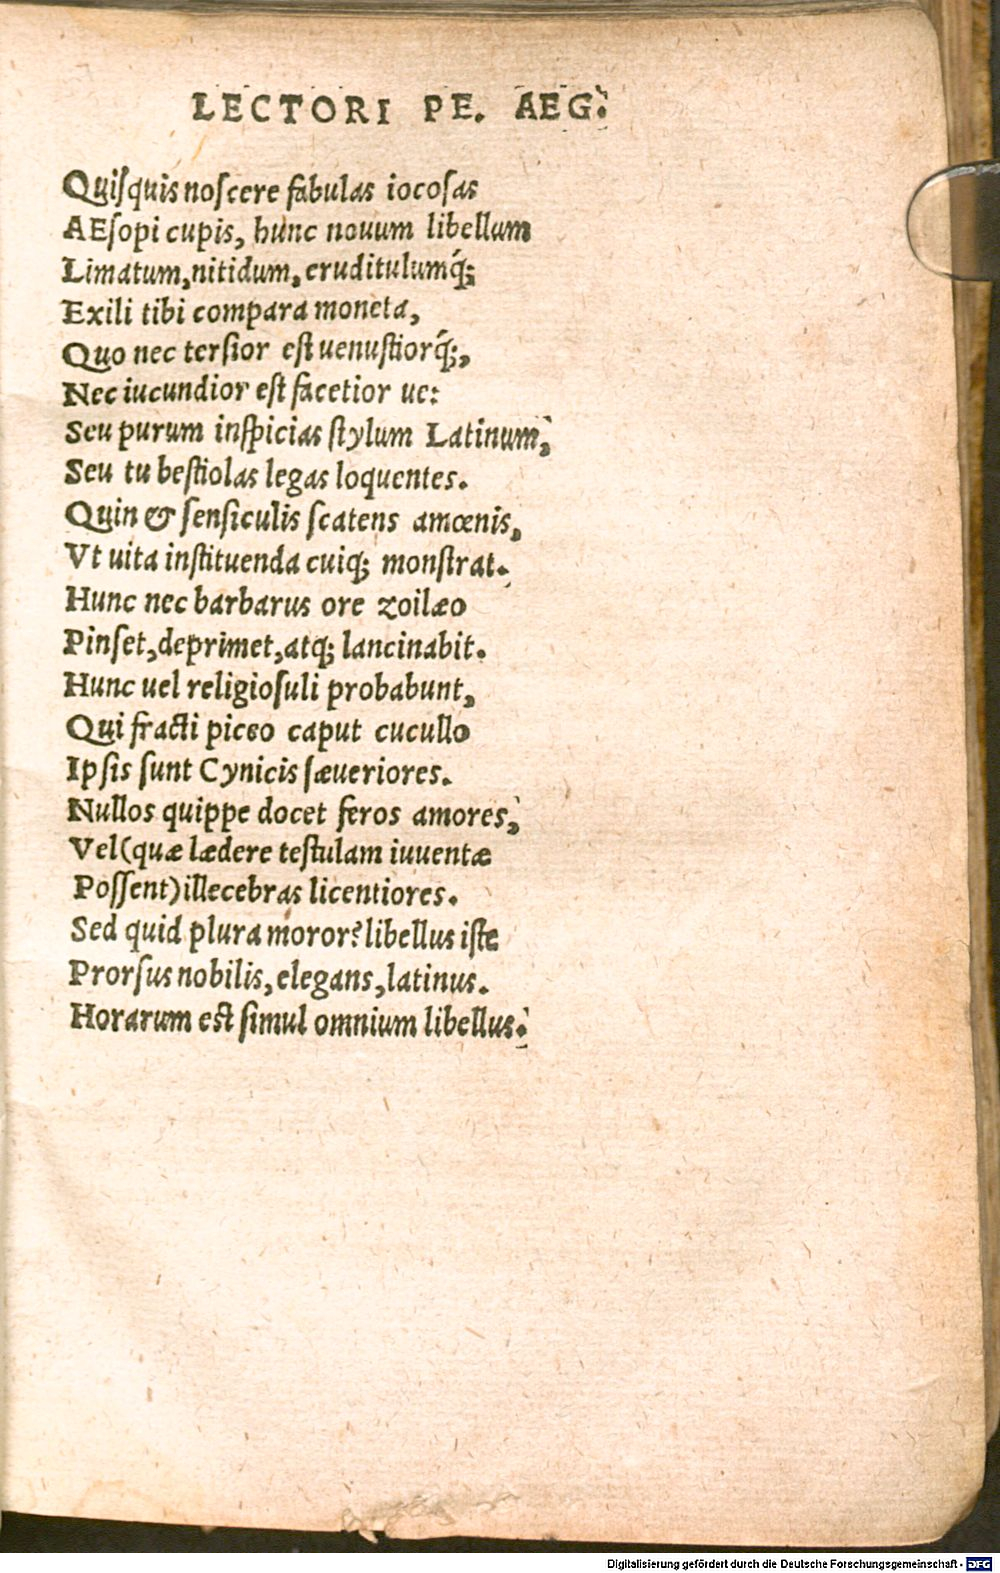 LECTORI PE. AEG.
Quiſquis noſcere fabulas iocoſas
AEſopi cupis, hunc nouum libellum
Limatum, nitidum, eruditulumq́;
Exili tibi compara moneta,
Quo nec terſior eſt uenuſtiorq́;,
Nec iucundior eſt facetior ue:
Seu purum inſpicias ſtylum Latinum,
Seu tu beſtiolas legas loquentes.
Quin & ſenſiculis ſcatens amœnis,
Vt uita inſtituenda cuiq; monſtrat.
Hunc nec barbarus ore zoilæo
Pinſet, deprimet, atq; lancinabit.
Hunc uel religioſuli probabunt,
Qui fracti piceo caput cucullo
Ipſis ſunt Cynicis ſæueriores.
Nullos quippe docet feros amores,
Vel (quæ lædere teſtulam iuuentæ
Poſſent) illecebras licentiores.
Sed quid plura moror? libellus iſte
Prorſus nobilis, elegans, latinus.
Horarum eſt ſimul omnium libellus.
Digitalisierung gefördert durch die Deutsche Forschungsgemeinschaft - DFG